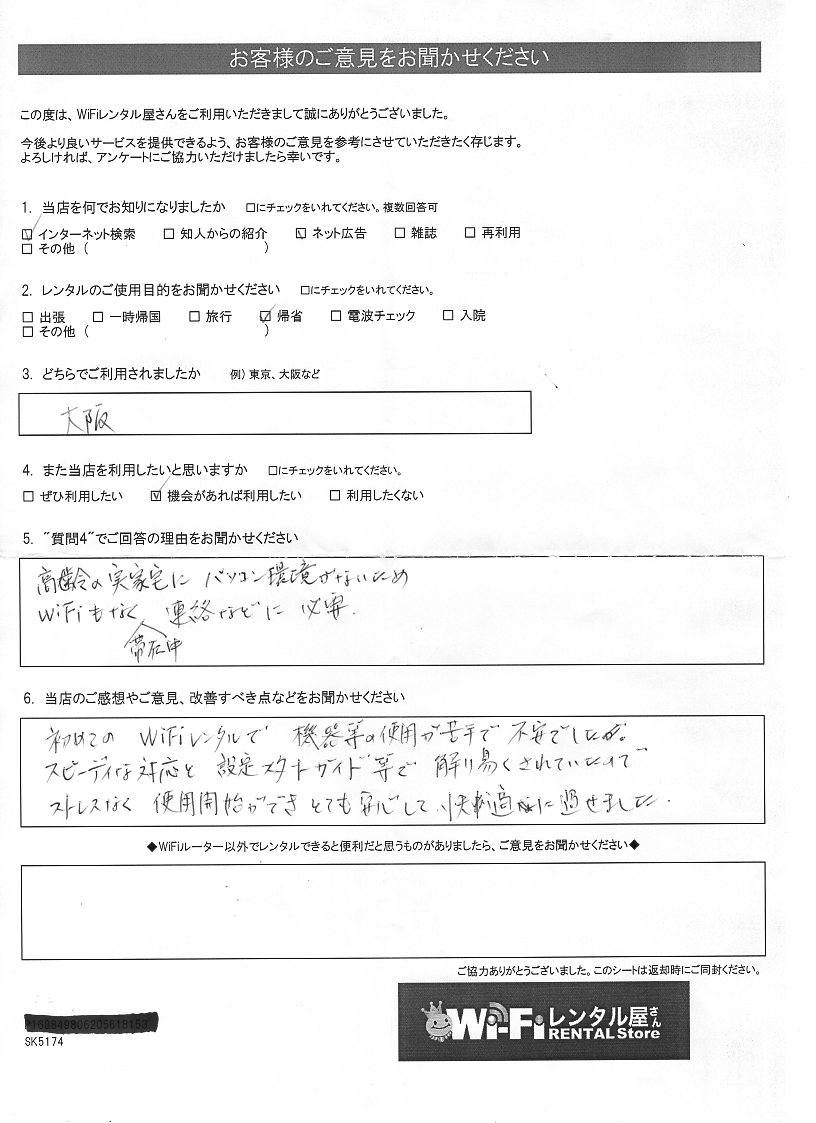 お客様のご意見をお聞かせください
この度は、WiFiレンタル屋さんをご利用いただきまして誠にありがとうございました。
今後より良いサービスを提供できるよう、お客様のご意見を参考にさせていただきたく存じます。
よろしければ、アンケートにご協力いただけましたら幸いです。
1. 当店を何でお知りになりましたか □にチェックをいれてください。複数回答可
☑インターネット検索 □ 知人からの紹介 ☑ ネット広告 □ 雑誌 □ 再利用
□ その他 ( )
2. レンタルのご使用目的をお聞かせください □にチェックをいれてください。
□ 出張 □ 一時帰国 □ 旅行 ☑ 帰省 □ 電波チェック □ 入院
□ その他 ( )
3. どちらでご利用されましたか 例) 東京、大阪など
大阪
4. また当店を利用したいと思いますか □にチェックをいれてください。
□ ぜひ利用したい ☑ 機会があれば利用したい □ 利用したくない
5. "質問4"でご回答の理由をお聞かせください
高齢の実家宅に パソコン環境がないため
WiFiもなく 連絡などに必要.
滞在中
6. 当店のご感想やご意見、改善すべき点などをお聞かせください
初めての WiFiレンタルで 機器等の使用が苦手で 不安でしたが。
スピーディな対応と 設定スタートガイド等で 解り易くされていたので
ストレスなく 使用開始ができ とても安心して、快適に過せました.
◆WiFiルーター以外でレンタルできると便利だと思うものがありましたら、ご意見をお聞かせください◆
ご協力ありがとうございました。このシートは返却時にご同封ください。
SK5174
Wi-Fiレンタル屋さん
RENTAL Store